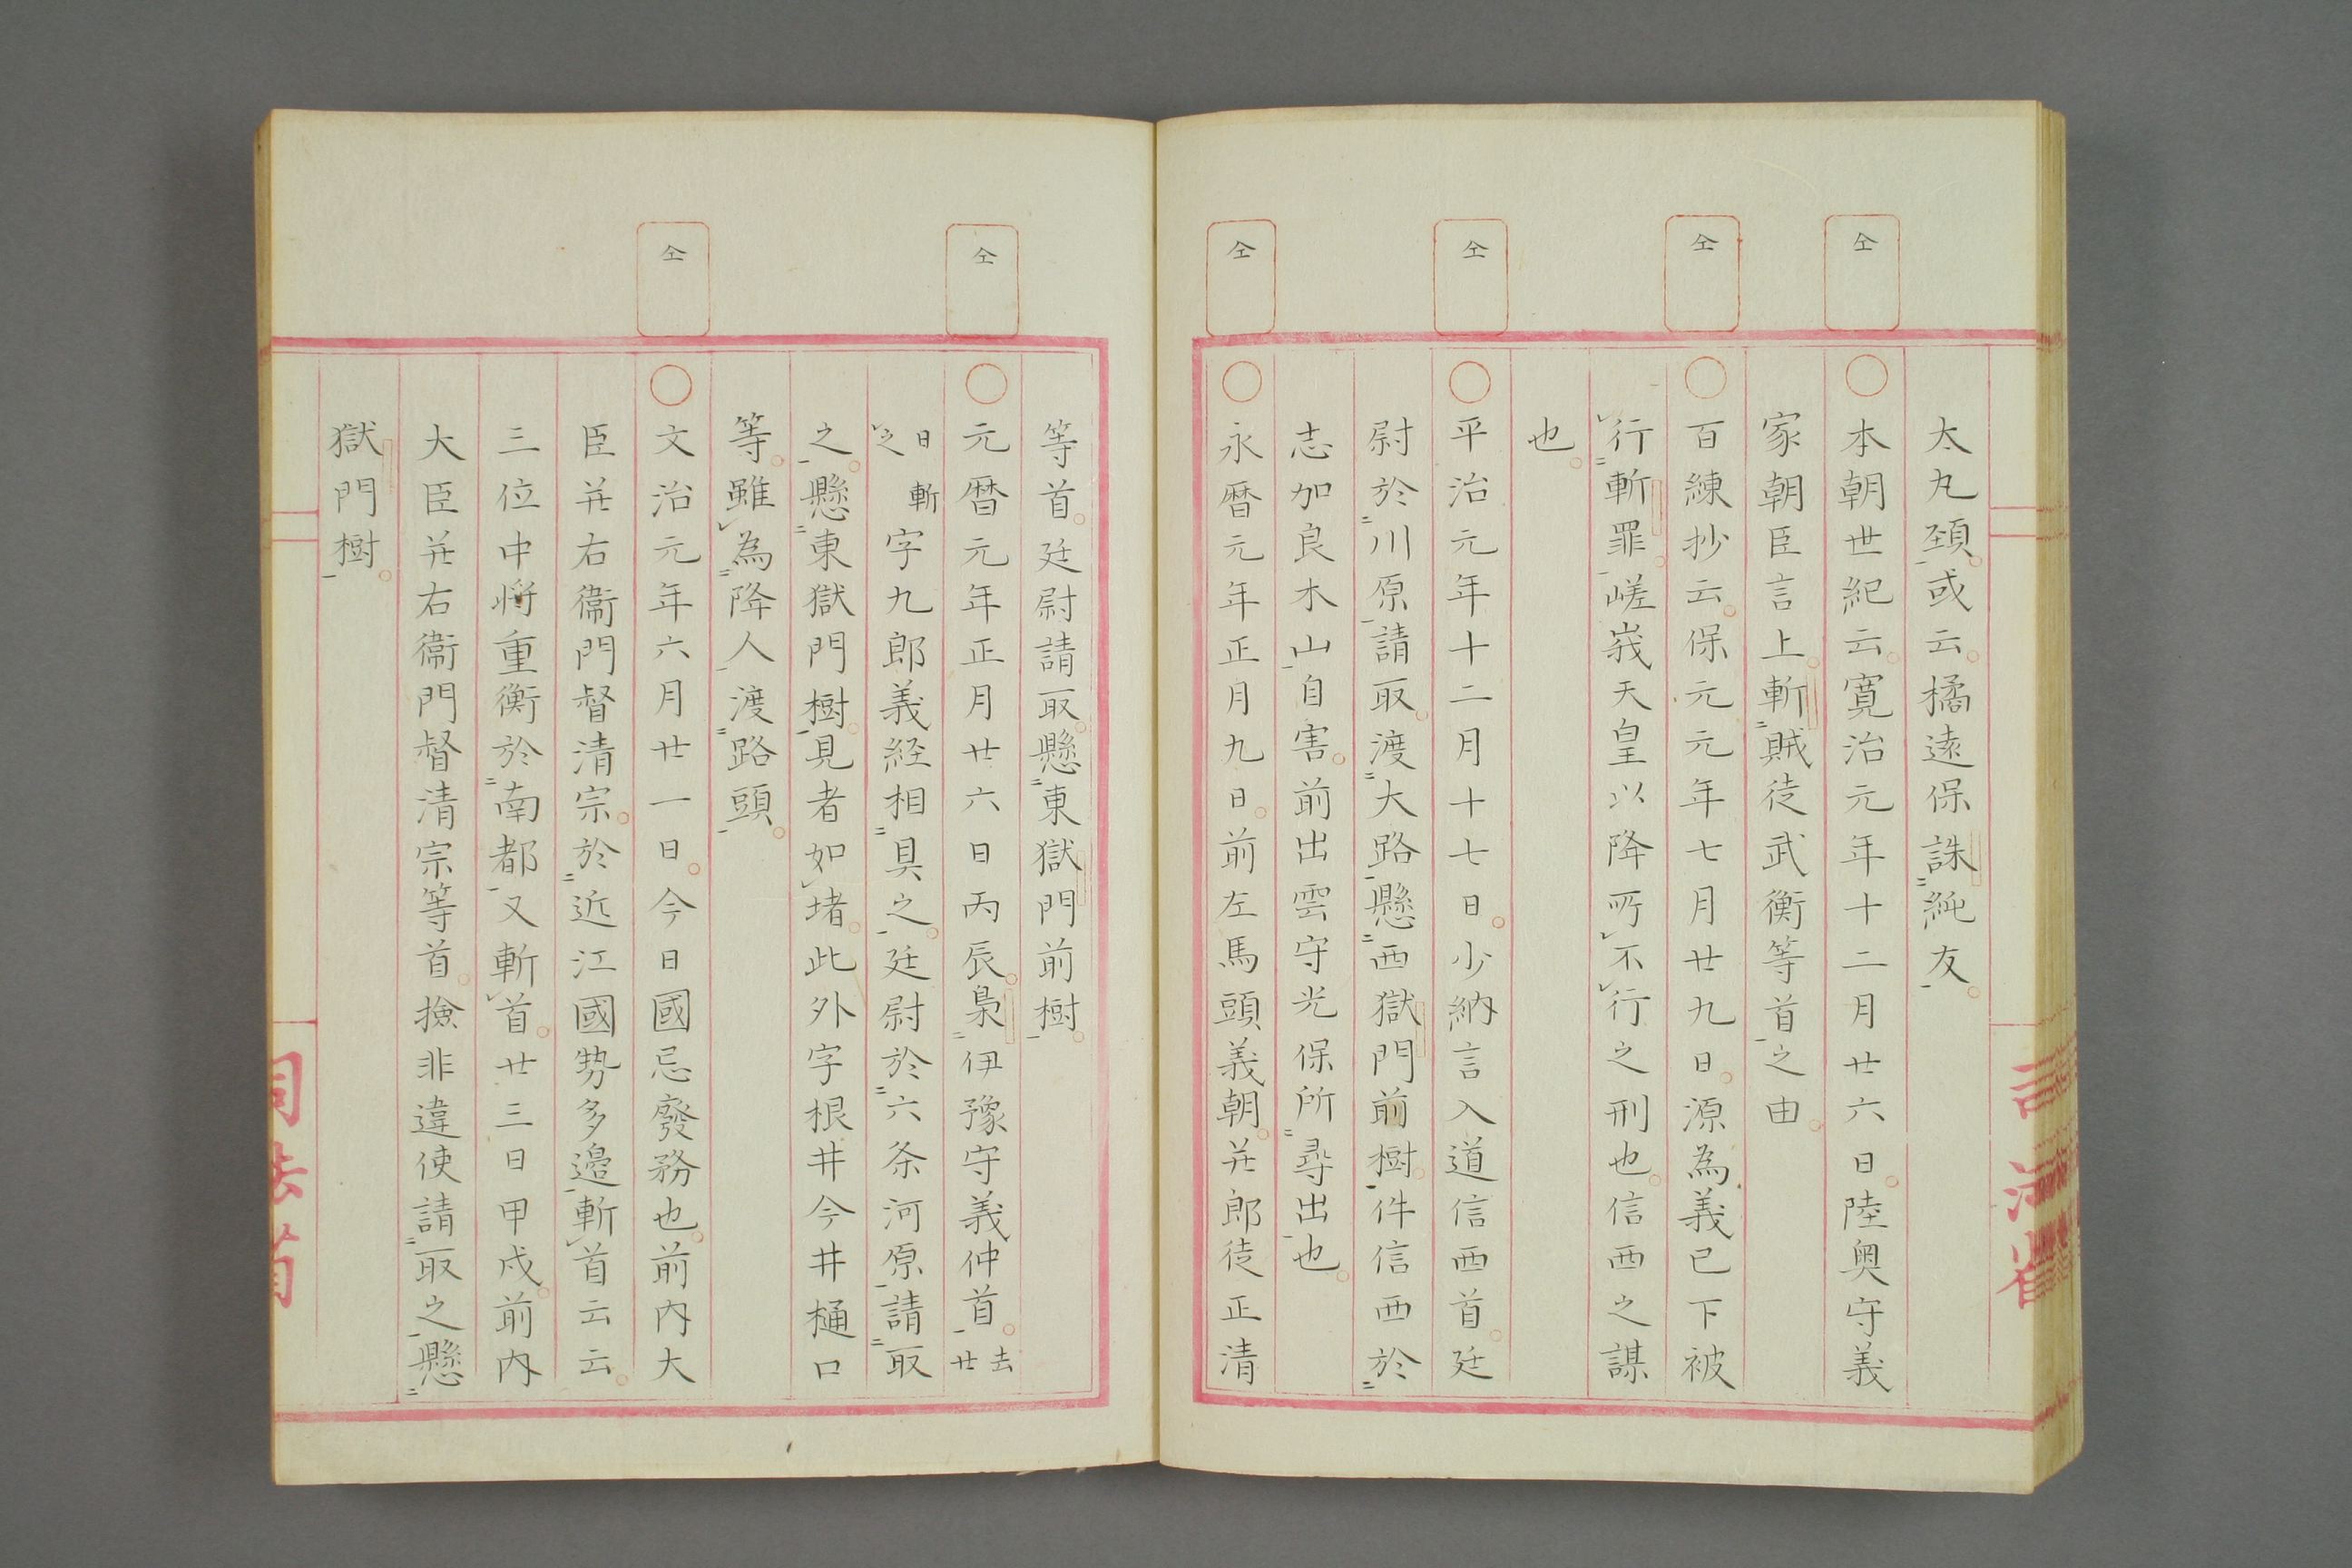 仝
仝
仝
仝
太丸頚。或云。橘遠保誅純友。
〇本朝世紀云。寛治元年十二月廿六日。陸奥守義
家朝臣言上。斬賊徒武衡等首之由。
〇百練抄云。保元元年七月廿九日。源為義已下被
行斬罪。嵯峩天皇以降所不行之刑也。信西之謀
也。
〇平治元年十二月十七日。少納言入道信西首。廷
尉於川原請取。渡大路懸西獄門前樹。件信西於
志加良木山自害。前出雲守光保所尋出也。
〇永暦元年正月九日。前左馬頭義朝。并郎徒正清
司法省
仝
仝
等首。廷尉請取。懸東獄門前樹。
〇元暦元年正月廿六日丙辰。梟伊豫守義仲首。去廿
日斬之字九郎義経相具之。廷尉於六条河原請取
之。懸東獄門樹。見者如堵。此外字根井今井樋口
等。雖為降人渡路頭。
〇文治元年六月廿一日。今日國忌廢務也。前内大
臣并右衞門督清宗。於近江國勢多邉斬首云云。
三位中将重衡於南都又斬首。廿三日甲戌。前内
大臣并右衞門督清宗等首。撿非違使請取之懸
獄門樹。
司法省